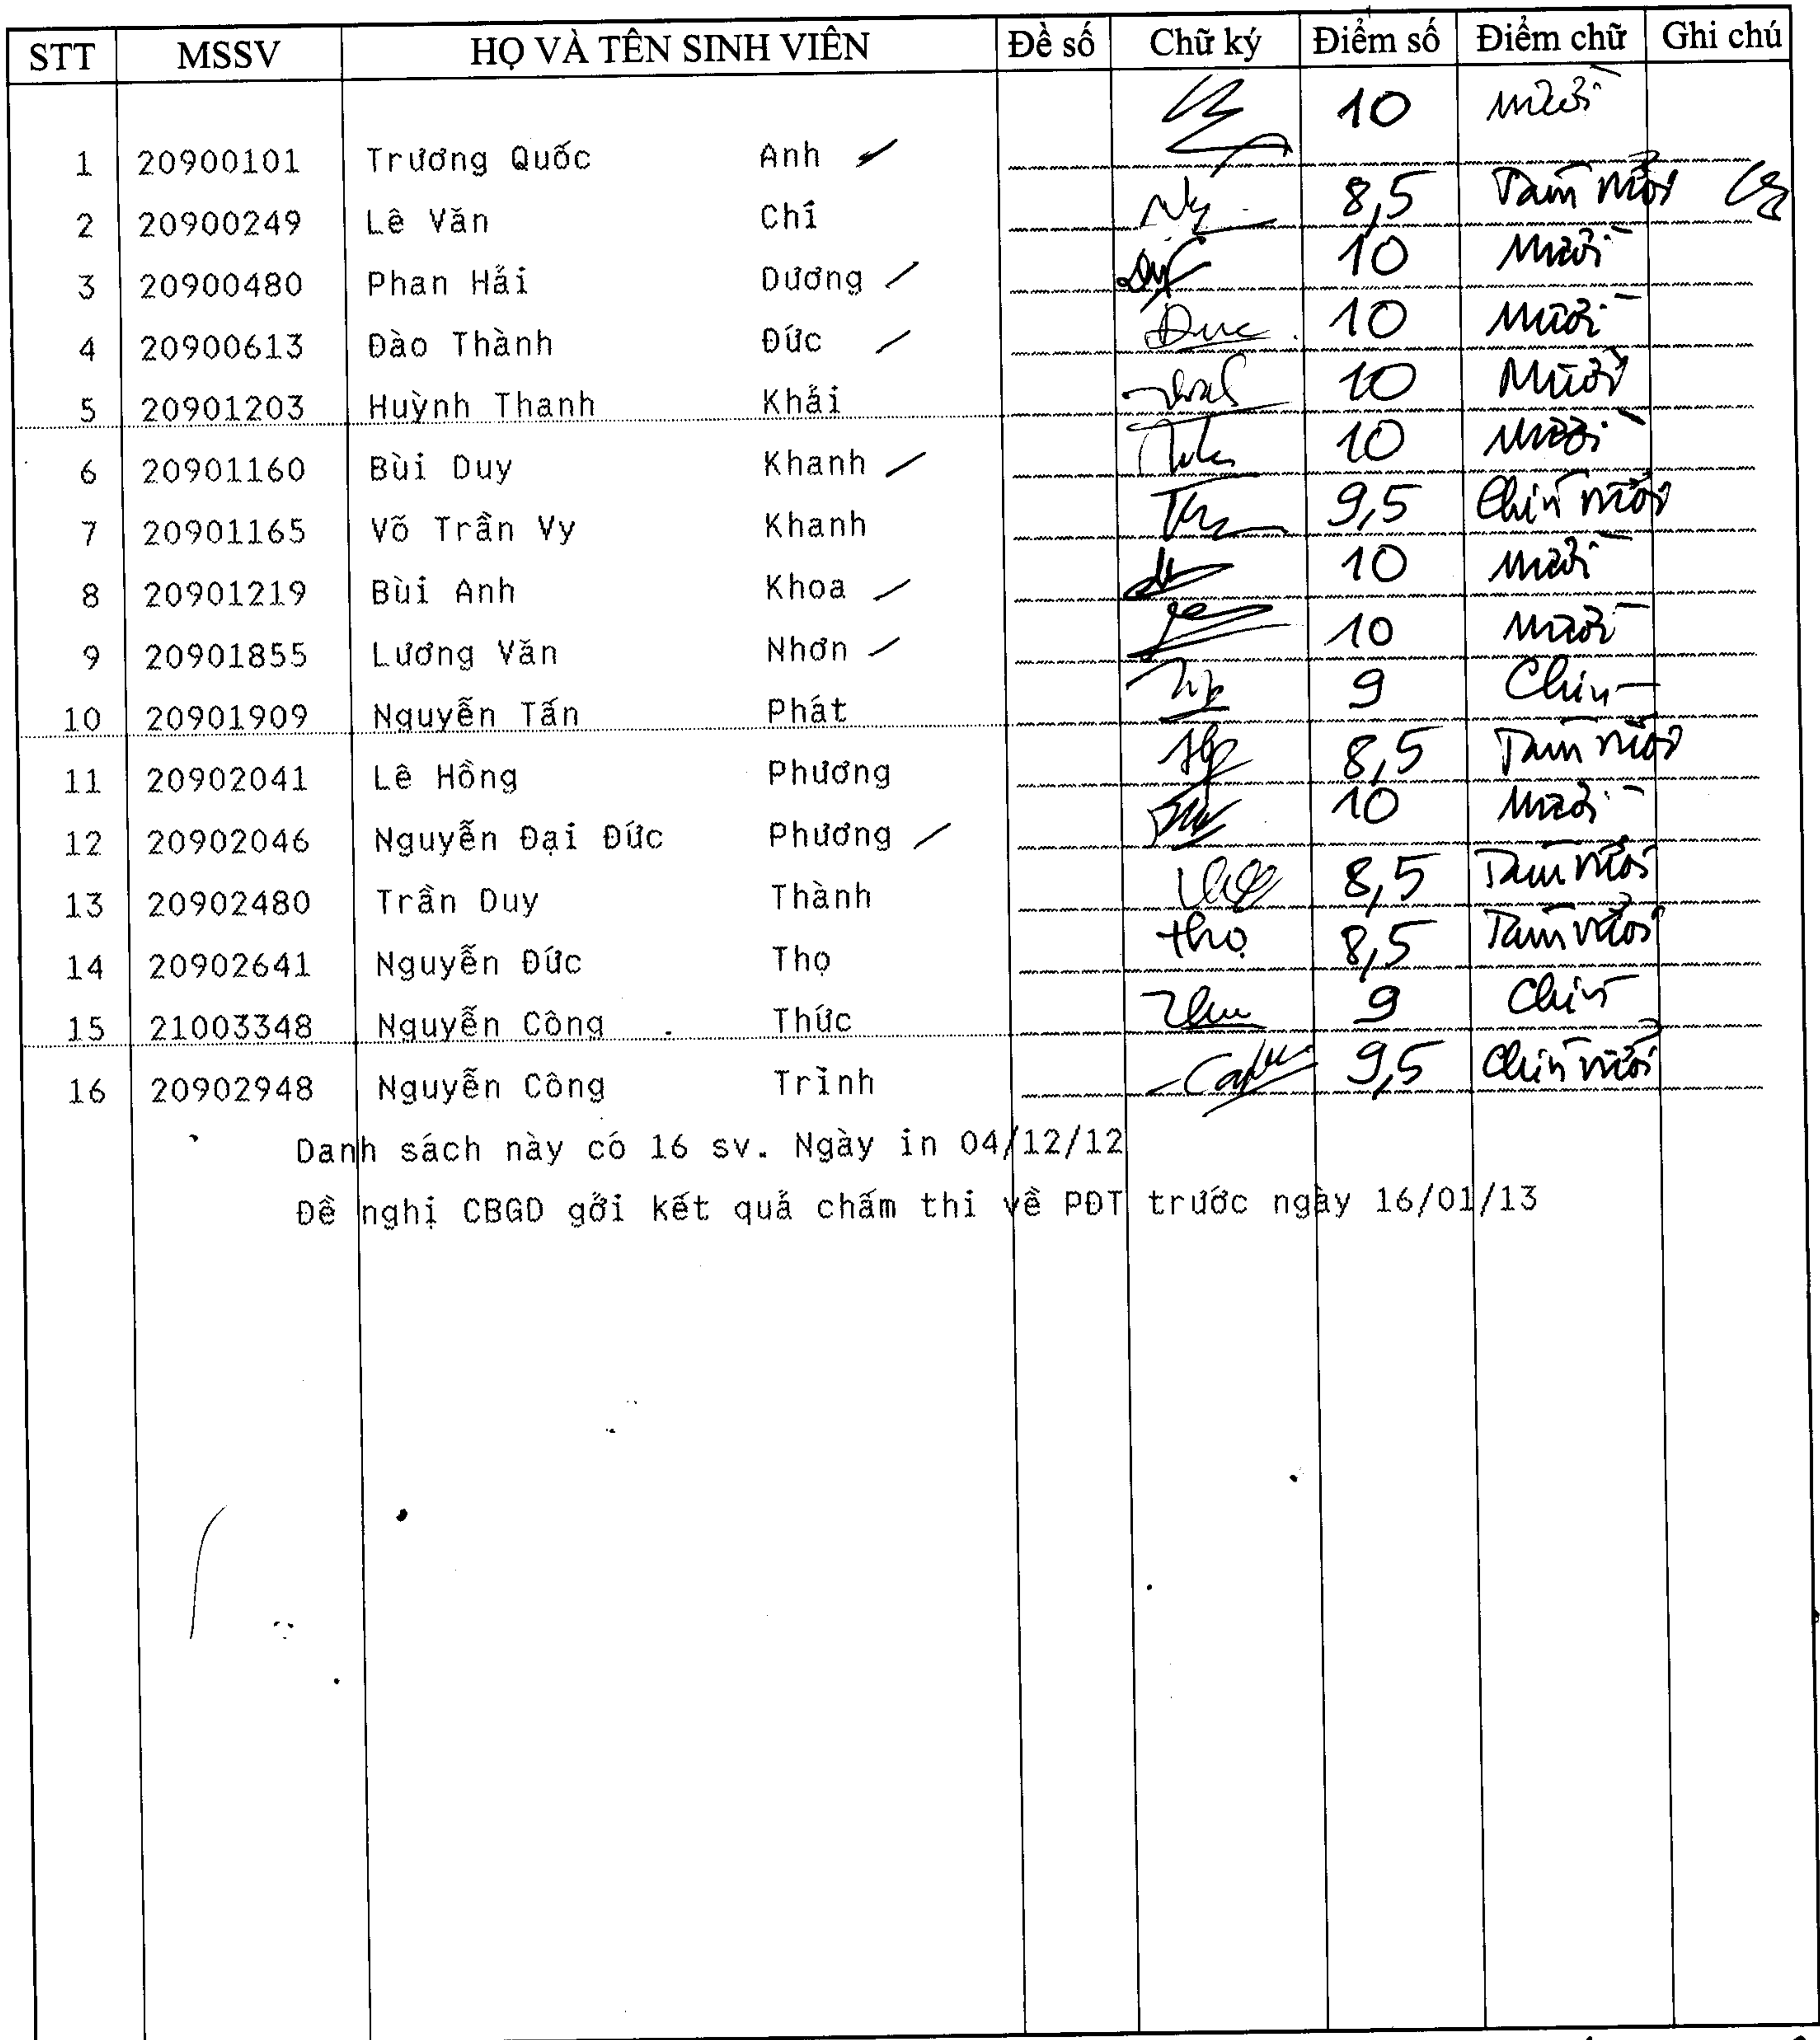 STT MSSV HỌ VÀ TÊN SINH VIÊN Đề số Chữ ký Điểm số Điểm chữ Ghi chú
1 20900101 Trương Quốc Anh 10 Mười
2 20900249 Lê Văn Chí 8,5 Tám rưỡi
3 20900480 Phan Hải Dương 10 Mười
4 20900613 Đào Thành Đức Duc 10 Mười
5 20901203 Huỳnh Thanh Khải 10 Mười
6 20901160 Bùi Duy Khanh 10 Mười
7 20901165 Võ Trần Vy Khanh 9,5 Chín rưỡi
8 20901219 Bùi Anh Khoa 10 Mười
9 20901855 Lương Văn Nhơn 10 Mười
10 20901909 Nguyễn Tấn Phát 9 Chín
11 20902041 Lê Hồng Phương 8,5 Tám rưỡi
12 20902046 Nguyễn Đại Đức Phương 10 Mười
13 20902480 Trần Duy Thành 8,5 Tám rưỡi
14 20902641 Nguyễn Đức Thọ thọ 8,5 Tám rưỡi
15 21003348 Nguyễn Công Thức 9 Chín
16 20902948 Nguyễn Công Trình 9,5 Chín rưỡi
Danh sách này có 16 sv. Ngày in 04/12/12
Đề nghị CBGD gởi kết quả chấm thi về PĐT trước ngày 16/01/13